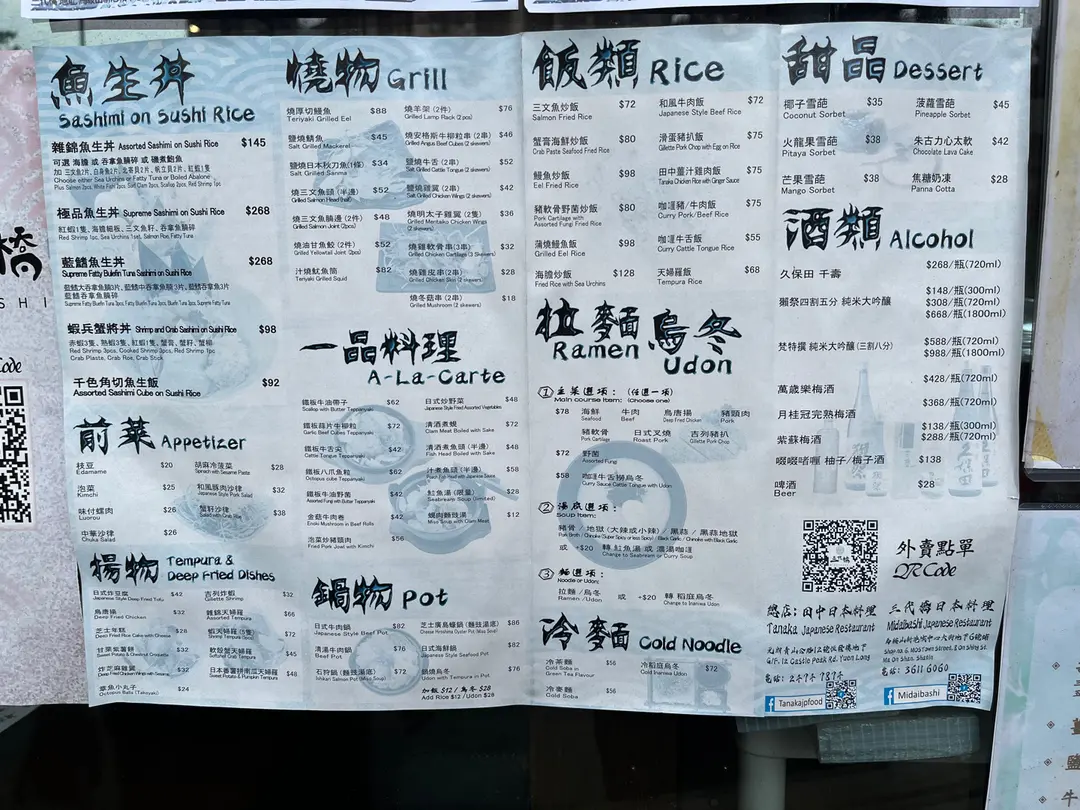 魚生丼
Sashimi on Sushi Rice
雜錦魚生丼 Assorted Sashimi on Sushi Rice $145
可選 海膽 或 吞拿魚腩碎 或 磯煮鮑魚
加 三文魚2片, 白身魚2片, 北寄貝2片, 帆立貝2片, 紅蝦1隻
Choose either Sea Urchins or Fatty Tuna or Boiled Abalone
Plus Salmon 2pcs, White Fish 2pcs, Surf Clam 2pcs, Scallop 2pcs, Red Shrimp 1pc
極品魚生丼 Supreme Sashimi on Sushi Rice $268
紅蝦1隻, 海膽細板, 三文魚籽, 吞拿魚腩碎
Red Shrimp 1pc, Sea Urchins 1set, Salmon Roe, Fatty Tuna
藍鰭魚生丼 $268
Supreme Fatty Bulefin Tuna Sashimi on Sushi Rice
藍鰭大吞拿魚腩 3片, 藍鰭中吞拿魚腩3片, 藍鰭吞拿魚3片
藍鰭吞拿魚腩碎
蝦兵蟹將丼 Shrimp and Crab Sashimi on Sushi Rice $98
赤蝦3隻, 熟蝦3隻, 紅蝦1隻, 蟹膏, 蟹籽, 蟹柳
Red Shrimp 3pcs, Cooked Shrimp 3pcs, Red Shrimp 1pc
Crab Plaste, Crab Roe, Crab Stick
千色角切魚生飯 $92
Assorted Sashimi Cube on Sushi Rice
前菜 Appetizer
枝豆 $20
Edamame
泡菜 $25
Kimchi
味付螺肉 $26
Luorou
中華沙律 $26
Chuka Salad
胡麻冷菠菜 $28
Spinach with Sesame Paste
和風豚肉沙律 $32
Japanese Style Pork Salad
蟹籽沙律 $38
Salad with Crab Roe
揚物 Tempura &
Deep Fried Dishes
日式炸豆腐 $42
Japanese Style Deep Fried Tofu
鳥唐揚 $32
Deep Fried Chicken
芝士年糕 $28
Deep Fried Rice Cake with Cheese
甘栗紫薯餅 $32
Sweet Potato & Chestnut Croquette
炸芝麻雞翼 $32
Deep Fried Chicken Wings with Sesame
章魚小丸子 $24
Octopus Balls (Takoyaki)
吉列炸蝦 $32
Gillette Shrimp
雜錦天婦羅 $66
Assorted Tempura
蝦天婦羅 (5隻) $72
Shrimp Tempura (5pcs)
軟殼蟹天婦羅 $45
Softshell Crab Tempura
日本番薯拼南瓜天婦羅 $48
Sweet Potato & Pumpkin Tempura
燒物 Grill
燒厚切鰻魚 $88
Teriyaki Grilled Eel
鹽燒鯖魚 $45
Salt Grilled Mackerel
鹽燒日本秋刀魚(條) $34
Salt Grilled Sanma
燒三文魚頭 (半邊) $52
Grilled Salmon Head (half)
燒三文魚腩邊 (2件) $48
Grilled Salmon Joint (2pcs)
燒油甘魚鮫 (2件) $52
Grilled Yellowtail Joint (2pcs)
汁燒魷魚筒 $82
Teriyaki Grilled Squid
燒羊架 (2件) $76
Grilled Lamp Rack (2 pcs)
燒安格斯牛柳粒串 (2串) $46
Grilled Angus Beef Cubes (2 skewers)
鹽燒牛舌 (2串) $52
Salt Grilled Cattle Tongue (2 skewers)
鹽燒雞翼 (2串) $42
Salt Grilled Chicken Wings (2 skewers)
燒明太子雞翼 (2隻) $36
Grilled Mentaiko Chicken Wings
(2 skewers)
燒雞軟骨串(3串) $32
Grilled Chicken Cartilage (3 Skewers)
燒雞皮串(2串) $28
Grilled Chicken Skin (2 skewers)
燒冬菇串 (2串) $18
Grilled Mushroom (2 skewers)
一品料理
A-La-Carte
鐵板牛油帶子 $62
Scallop with Butter Teppanyaki
鐵板蒜片牛柳粒 $72
Garlic Beef Cubes Teppanyaki
鐵板牛舌尖 $42
Cattle Tongue Teppanyaki
鐵板八爪魚粒 $62
Octopus cube Teppanyaki
鐵板牛油野菌 $42
Assorted Fungi with Butter Teppanyaki
金菇牛肉卷 $42
Enoki Mushroom in Beef Rolls
泡菜炒豬頸肉 $56
Fried Pork Jowl with Kimchi
日式炒野菜 $48
Japanese Style Fried Assorted Vegetables
清酒煮蜆 $72
Clam Meat Boiled with Sake
清酒煮魚頭 (半邊) $48
Fish Head Boiled with Sake
汁煮魚頭 (半邊) $58
鯛魚湯 (限量) $28
Seabream Soup (limited)
蜆肉麵豉湯 $12
Miso Soup with Clam Meat
鍋物 Pot
日式牛肉鍋 $82
Japanese Style Beef Pot
清湯牛肉鍋 $78
Beef Pot
石狩鍋 (麵豉湯底) $72
Ishikari Salmon Pot (Miso Soup)
芝士廣島蠔鍋 (麵豉湯底) $86
Cheese Hiroshima Oyster Pot (Miso Soup)
日式海鮮鍋 $82
Japanese Style Seafood Pot
鍋燒烏冬 $76
Udon with Tempura in Pot
加飯 $12 / 烏冬 $28
Add Rice $12 / Udon $28
飯類 Rice
三文魚炒飯 $72
Salmon Fried Rice
蟹膏海鮮炒飯 $80
Crab Paste Seafood Fried Rice
鰻魚炒飯 $98
Eel Fried Rice
豬軟骨野菌炒飯 $80
Pork Cartilage with
Assorted Fungi Fried Rice
蒲燒鰻魚飯 $98
Grilled Eel Rice
海膽炒飯 $128
Fried Rice with Sea Urchins
和風牛肉飯 $72
Japanese Style Beef Rice
滑蛋豬扒飯 $75
Gillette Pork Chop with Egg on Rice
田中薑汁雞肉飯 $75
Tanaka Chicken Rice with Ginger Sauce
咖喱豬/牛肉飯 $75
Curry Pork/Beef Rice
咖喱牛舌飯 $55
Curry Cattle Tongue Rice
天婦羅飯 $68
Tempura Rice
拉麵 烏冬
Ramen Udon
① 主菜選項： (任選一項)
Main course Item: (Choose one)
$78 海鮮 牛肉 鳥唐揚 豬頸肉
Seafood Beef Deep Fried Chicken Pork
豬軟骨 日式叉燒 吉列豬扒
Pork Cartilage Roast Pork Gillette Pork Chop
$72 野菌
Assorted Fungi
$58 咖喱牛舌撈烏冬
Curry Sauce Cattle Tongue with Udon
② 湯底選項：
Soup Item:
豬骨 / 地獄 (大辣或小辣) / 黑蒜 / 黑蒜地獄
或 +$20 轉 鯛魚湯 或 濃湯咖喱
Change to Seabream or Curry Soup
③ 麵選項：
Noodle or Udon:
拉麵 / 烏冬 或 +$20 轉 稻庭烏冬
Ramen / Udon Change to Inaniwa Udon
冷麵 Cold Noodle
冷茶麵 $56
Cold Soba in
Green Tea Flavour
冷蕎麥 $56
Cold Soba
冷稻庭烏冬 $72
Cold Inaniwa Udon
甜品 Dessert
椰子雪葩 $35
Coconut Sorbet
火龍果雪葩 $38
Pitaya Sorbet
芒果雪葩 $38
Mango Sorbet
菠蘿雪葩 $45
Pineapple Sorbet
朱古力心太軟 $42
Chocolate Lava Cake
焦糖奶凍 $28
Panna Cotta
酒類 Alcohol
久保田 千壽 $268/瓶(720ml)
獺祭四割五分 純米大吟釀 $148/瓶(300ml)
$308/瓶(720ml)
$668/瓶(1800ml)
梵特撰 純米大吟釀 (三割八分) $588/瓶(720ml)
$988/瓶(1800ml)
萬歲樂梅酒 $428/瓶(720ml)
月桂冠完熟梅酒 $368/瓶(720ml)
紫蘇梅酒 $138/瓶(300ml)
$288/瓶(720ml)
啜啜啫喱 柚子/梅子酒 $138
啤酒 $28
Beer
外賣點單
QR Code
總店：田中日本料理
Tanaka Japanese Restaurant
元朗青山公路12號低層地下
G/F, 12 Castle Peak Rd, Yuen Long
電話：2494 9894
Tanakajpfood
三代橋日本料理
Midaibashi Japanese Restaurant
Ma On Shan, Shatin
電話：3611 6060
Midaibashi
橋